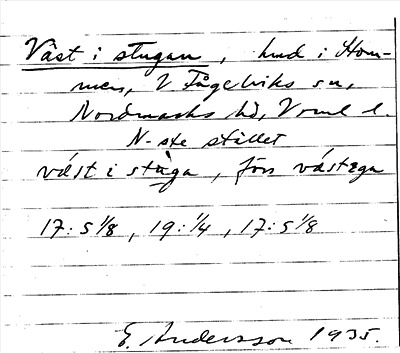 Väst i stugan, hmd i Hom-
men, V Fågelviks sn,
Nordmarks hd, Vrml l.
N-ste stället
väst i stùga, förr västega
17: 5 1/8, 19: 1/4, 17: 5 1/8
E. Andersson 1935.